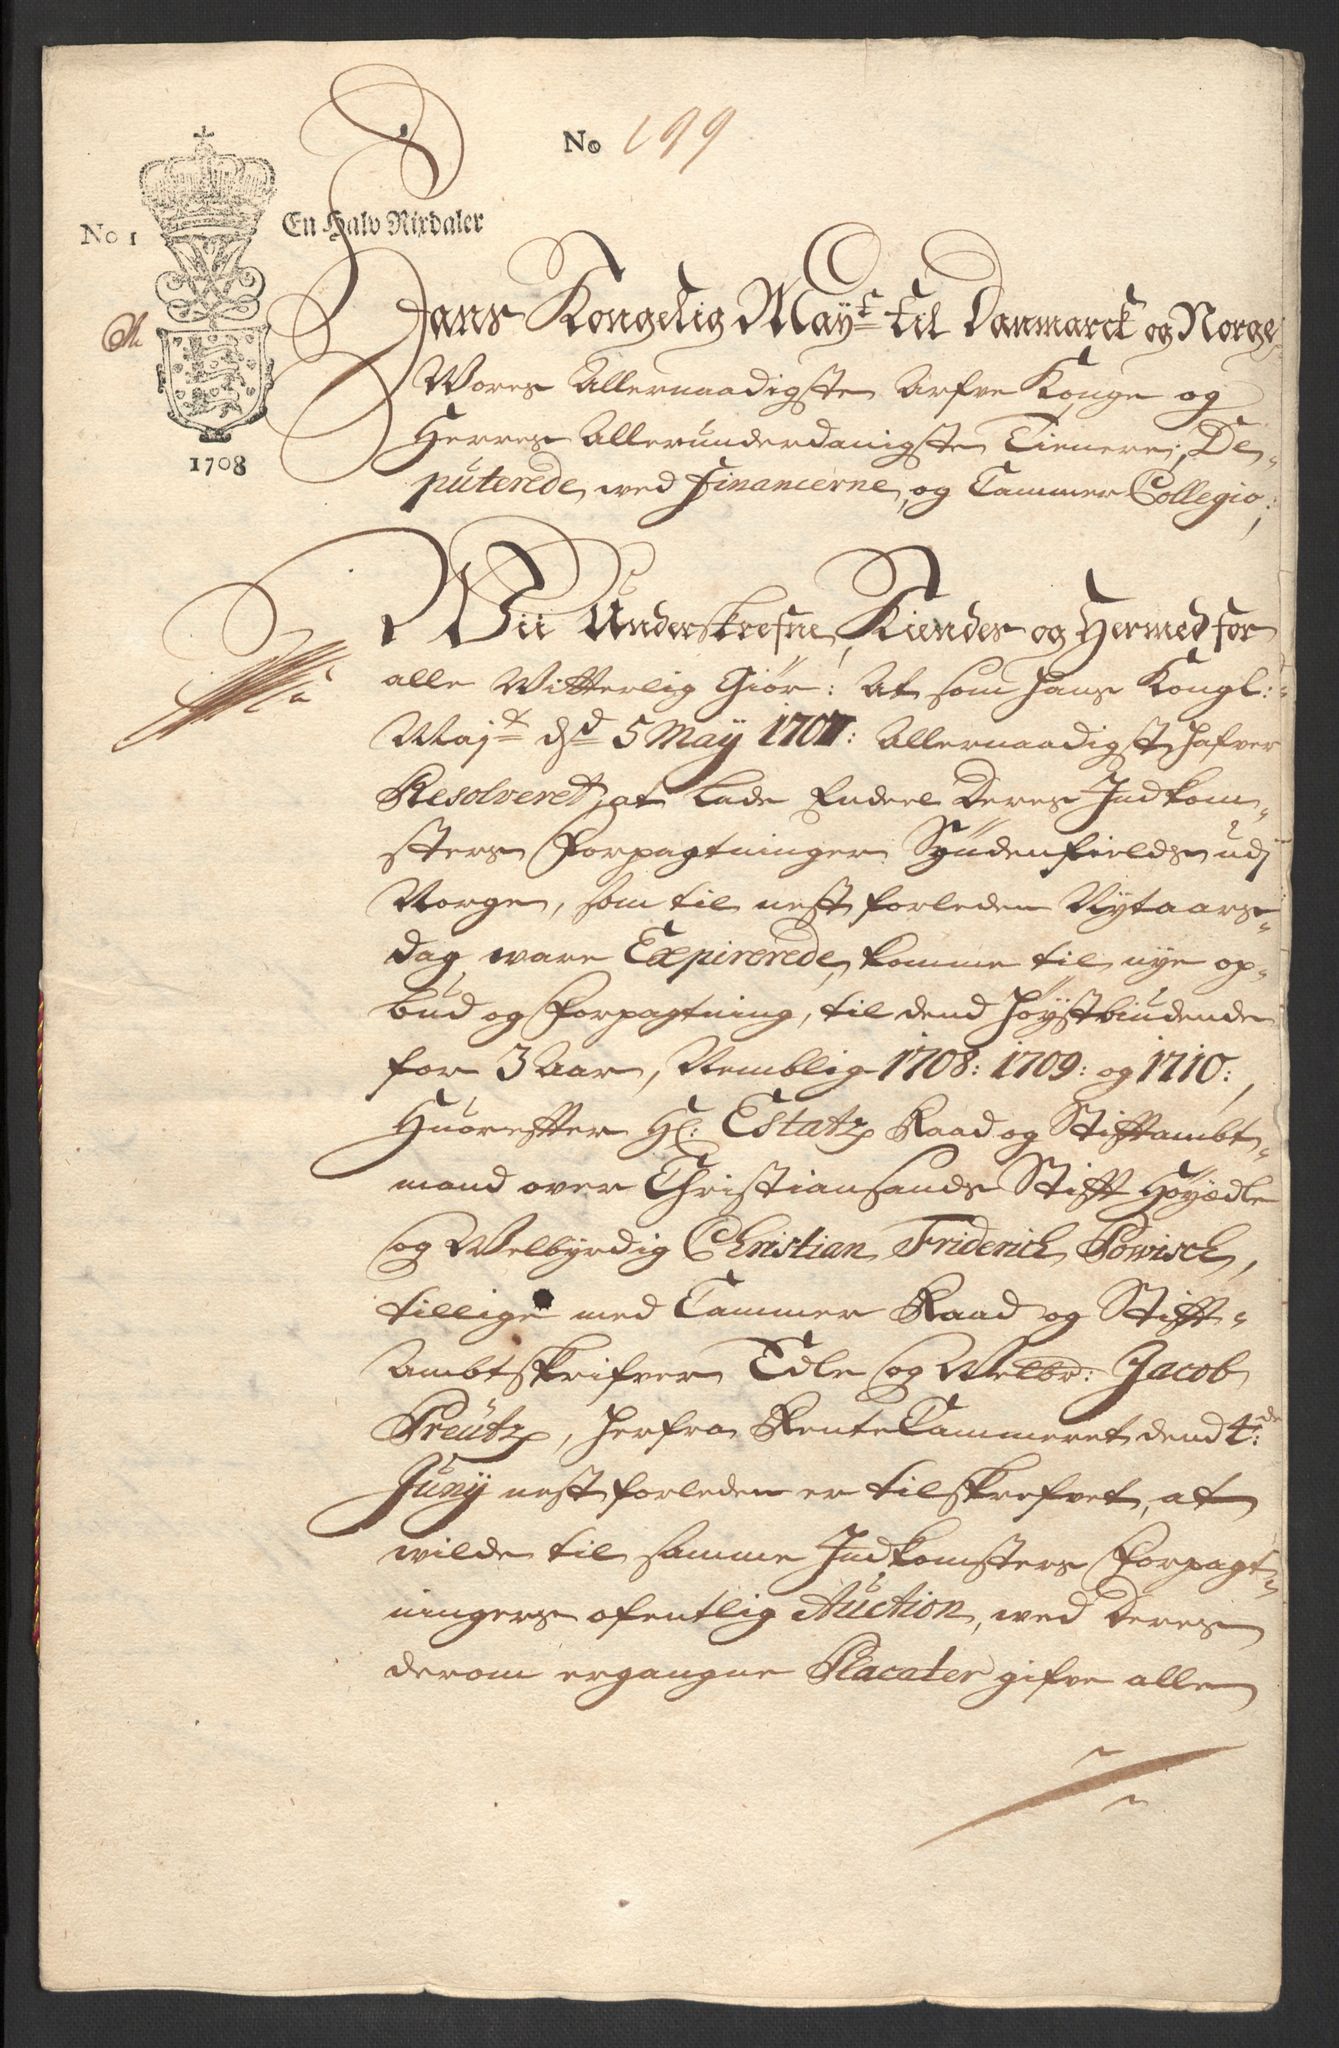 No 199
No 1
En Halv Rixdaler
1708
Hans Kongelig May:t til Danmarck og Norge,
Wores Allernaadigste Arfve Konge og
Herres Allerunderdanigste Tienere, De-
puterede wed Financerne, og Cammer Collegio;
Wii Underskrefne, Kiender og Hermed for
alle Witterlig Giör: At som Hans Kongl:
Maj:t d 5 May 1708: Allernaadigst hafver
Resolveret, at lade Endeel Deres Indkom-
sters Forpagtninger Syndenfields udj
Norge, som til nest forleden Nytaars-
dag ware Expirerede, komme til nye op-
bud og Forpagtning, til dend höystbiudende
for 3 Aar, Nemblig 1708: 1709: og 1710:,
Huorefter Hl: Estatz Raad og Stiftambt-
mand over Christiansands Stift Höyædle
og Welbyrdig Christian Friderich Powisch,
tillige med Cammer Raad og Stift-
Ambtskrifver Edle og Welbr: Jacob
Preutz, herfra Rente Cammeret dend 4:de
Juny nest forleden er tilskrefvet, at
wilde til samme Indkomsters Forpagt-
ningers ofentlig Auction, wed Deres
derom ergangne Placater gifve alle